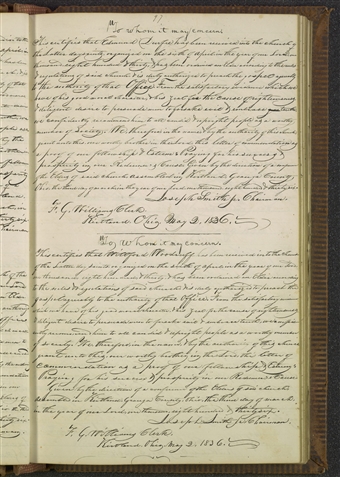 To Whom it may concern.
This certifies that Edmund has been received into the church of
the latter day saints, organized on the sixth of April in the year of our Lord one
thousand eight hundred & thirty, & has been ordained an Elder according to the rules
& regulations of said church, & is duly authorized to preach the gospel agreeably
to the authority of that Office. From the satisfactory evidence which we
have of his good moral character, & his zeal for the cause of righteousness,
& diligent desire to persuade men to forsake evil & embrace truth,
we confidently recommend him to all candid & upright people as a worthy
member of Society. We therefore in the name & by the authority of this church
grant unto this our worthy brother in the Lord this letter of commendation as
a proof of our fellowship & Esteem: Praying for his success &
prosperity in our Redeemer's Cause. Given by the direction of a
of the Elders of said church assembled in Kirtland, Geauga County,
Ohio, the in the year of our Lord one thousand eight hundred and thirty six.
Joseph Smith Jr Chairman.
F. G. Williams Clerk.
Kirtland, Ohio, May 2, 1836.
To Whom it may concern.
This certifies that Wilford Woodruff has been received into the church
of the latter day saints organized on the sixth of April in the year of our Lord
one thousand eight hundred & thirty, & has been ordained an Elder according
to the rules & regulations of said church & is duly authorized to preach the
gospel agreeably to the authority of that Office. From the satisfactory evidence
which we have of his good moral character, & his zeal for the cause of righteousness, &
diligent desire to persuade men to forsake evil & embrace truth, we confidently
recommend him to all candid & upright people as a worthy member
of society. We therefore in the name & by the authority of this church
grant unto this our worthy brother in the Lord this letter of
commendation as a proof of our fellowship & Esteem:
Praying for his success & prosperity in our Redeemer's Cause.
Given by the direction of a conference of the Elders of said church
assembled in Kirtland, Geauga County, Ohio, the third day of March
in the year of our Lord one thousand eight hundred & thirty six.
Joseph Smith Jr Chairman.
F. G. Williams Clerk.
Kirtland Ohio, May 2, 1836.